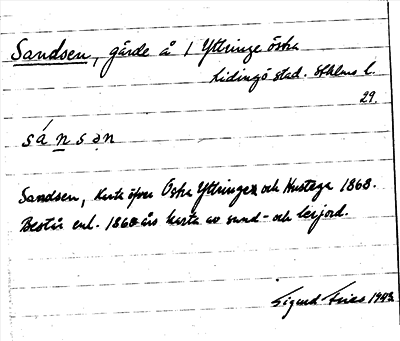 Sandsen, gärde å 1 Yttringe östra
Lidingö stad. Sthlms l.
29.
sánsən
Sandsen, Karta öfver Östra Yttringe och Hustega 1868.
Består enl. 1868 års karta av sand- och lerjord.
Sigurd Fries 1943